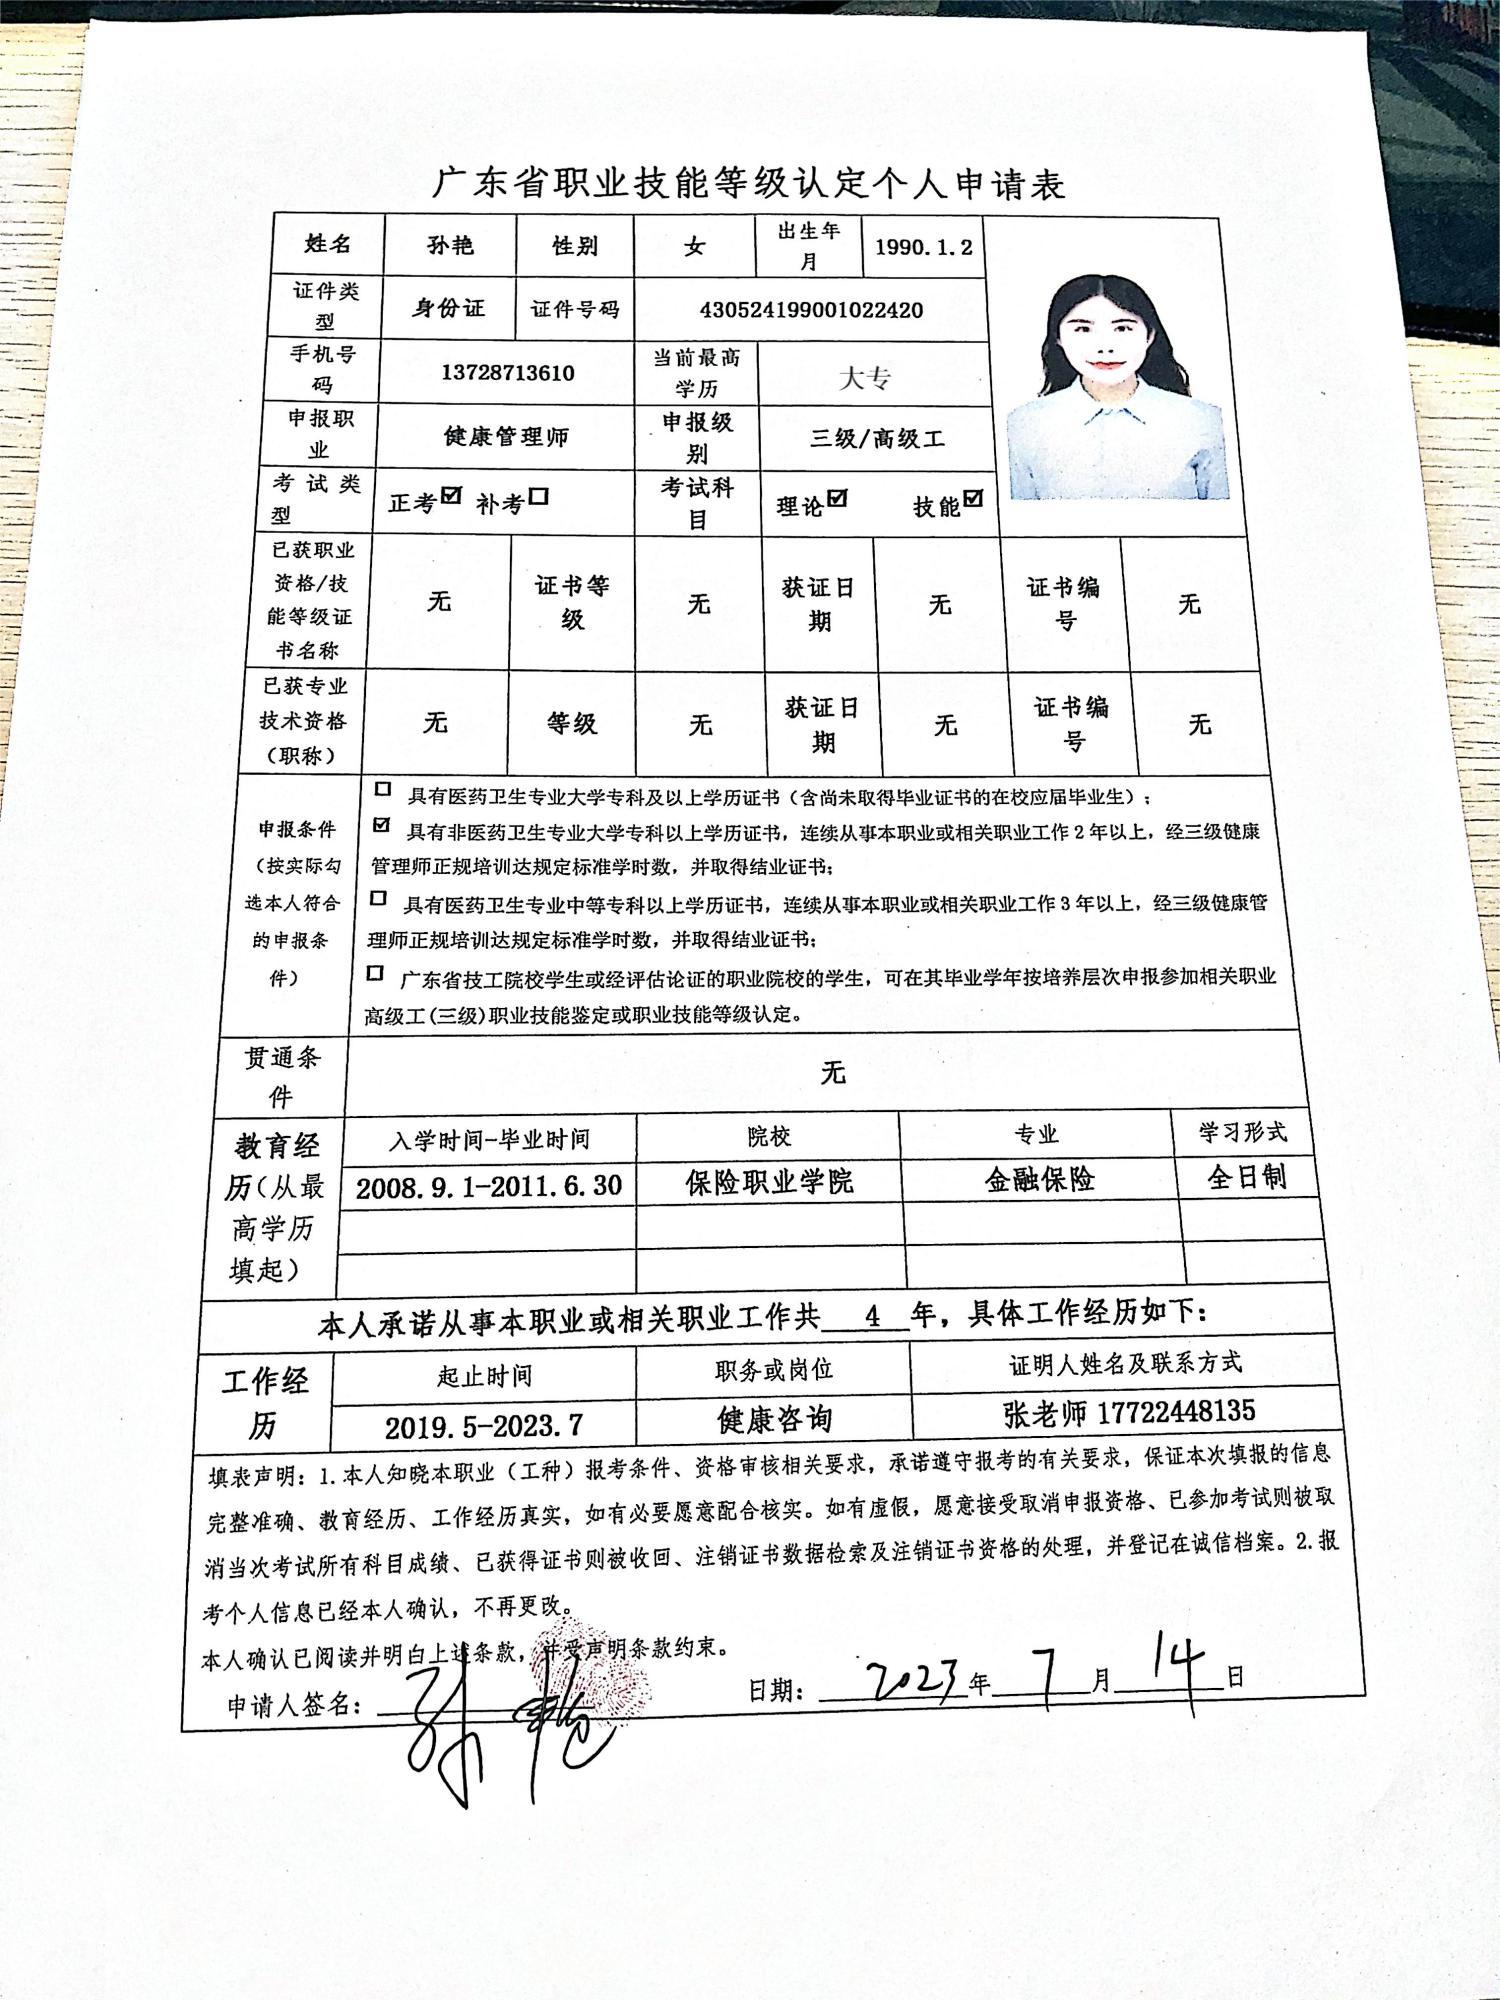 广东省职业技能等级认定个人申请表
姓名 孙艳 性别 女 出生年月 1990.1.2
证件类型 身份证 证件号码 430524199001022420
手机号码 13728713610 当前最高学历 大专
申报职业 健康管理师 申报级别 三级/高级工
考试类型 正考☑ 补考☐ 考试科目 理论☑ 技能☑
已获职业资格/技能等级证书名称 无 证书等级 无 获证日期 无 证书编号 无
已获专业技术资格（职称） 无 等级 无 获证日期 无 证书编号 无
申报条件（按实际勾选本人符合的申报条件）
☐ 具有医药卫生专业大学专科及以上学历证书（含尚未取得毕业证书的在校应届毕业生）；
☑ 具有非医药卫生专业大学专科以上学历证书，连续从事本职业或相关职业工作2年以上，经三级健康
管理师正规培训达规定标准学时数，并取得结业证书；
☐ 具有医药卫生专业中等专科以上学历证书，连续从事本职业或相关职业工作3年以上，经三级健康管
理师正规培训达规定标准学时数，并取得结业证书；
☐ 广东省技工院校学生或经评估论证的职业院校的学生，可在其毕业学年按培养层次申报参加相关职业
高级工(三级)职业技能鉴定或职业技能等级认定。
贯通条件 无
教育经历（从最高学历填起）
入学时间-毕业时间 院校 专业 学习形式
2008.9.1-2011.6.30 保险职业学院 金融保险 全日制
本人承诺从事本职业或相关职业工作共 4 年，具体工作经历如下：
工作经历
起止时间 职务或岗位 证明人姓名及联系方式
2019.5-2023.7 健康咨询 张老师 17722448135
填表声明：1.本人知晓本职业（工种）报考条件、资格审核相关要求，承诺遵守报考的有关要求，保证本次填报的信息
完整准确、教育经历、工作经历真实，如有必要愿意配合核实。如有虚假，愿意接受取消申报资格、已参加考试则被取
消当次考试所有科目成绩、已获得证书则被收回、注销证书数据检索及注销证书资格的处理，并登记在诚信档案。2.报
考个人信息已经本人确认，不再更改。
本人确认已阅读并明白上述条款，并受声明条款约束。
申请人签名：孙艳 日期：2023年7月14日